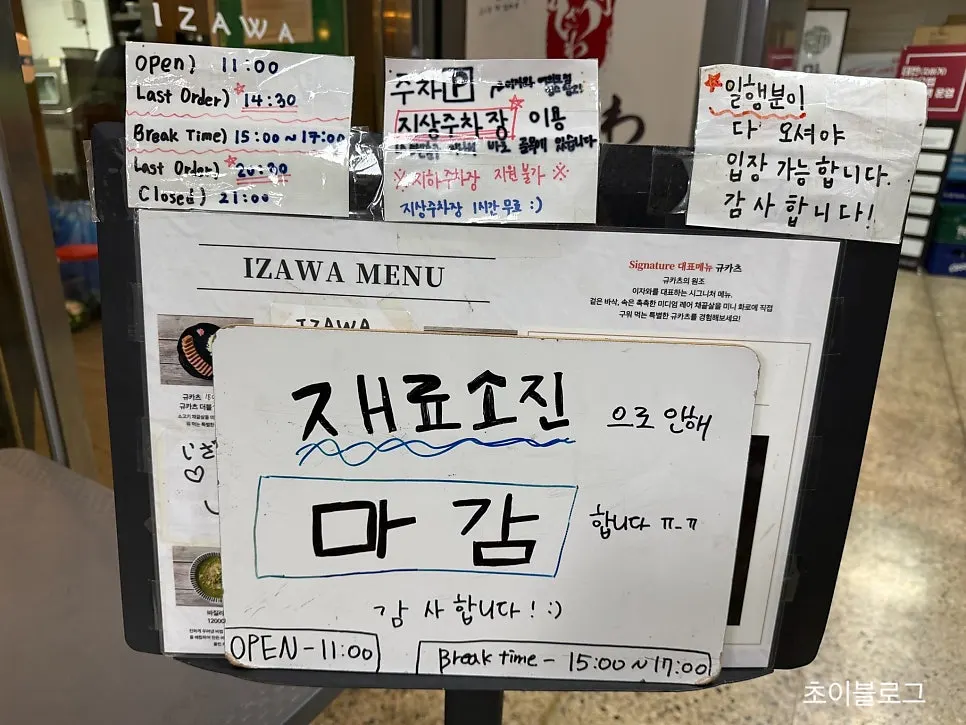 IZAWA
Open) 11:00
Last Order) 14:30
Break Time) 15:00~17:00
Last Order) 20:30
Closed) 21:00
주차 P
지상주차장 이용
바로 있습니다
※ 지하주차장 지원불가 ※
지상주차장 1시간 무료 :)
일행분이
다 오셔야
입장 가능합니다.
감사합니다!
IZAWA MENU
Signature 대표메뉴 규카츠
규카츠의 원조
이자와를 대표하는 시그니처 메뉴.
겉은 바삭, 속은 촉촉한 미디엄 레어 채끝살을 미니 화로에 직접
구워 먹는 특별한 규카츠를 경험해보세요!
IZAWA
규카츠
규카츠 더블
재료소진 으로 인해
마감 합니다 ㅠ-ㅠ
감사합니다! :)
OPEN - 11:00
Break time - 15:00~17:00
바질
초이블로그